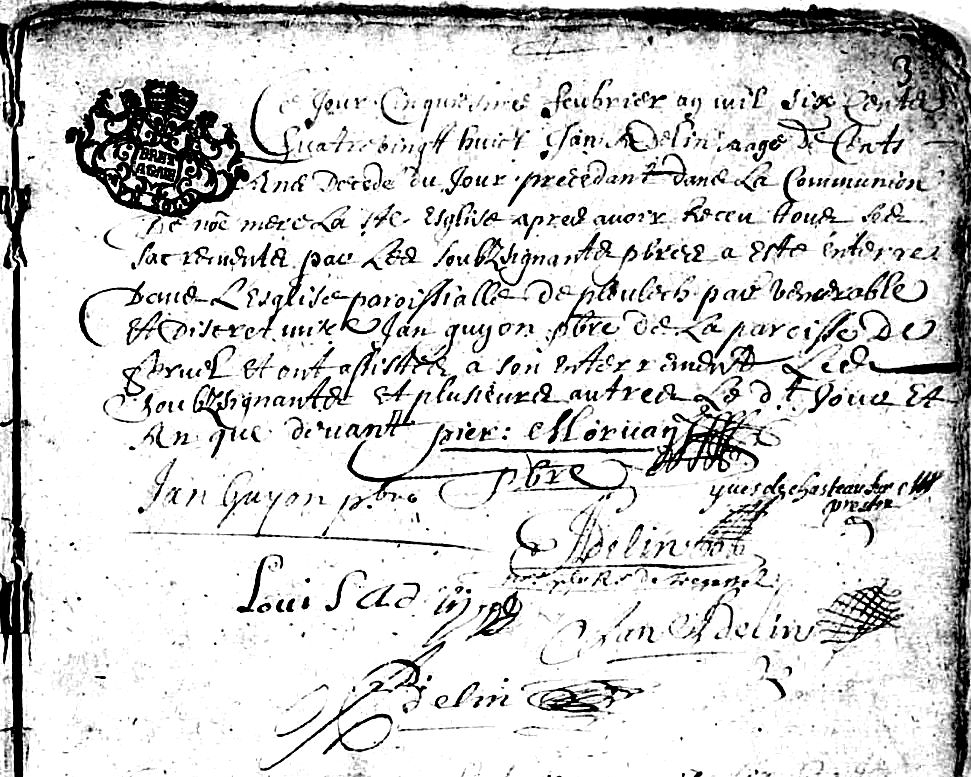 3
Ce Jour Cinquiesme febvrier an mil six cents
quatre vingtt huict Jan Adelin aage de Cents
Ans Decede du Jour precedant dans La Communion
De nõe mere La Ste Esglise apres avoir Receu tous ses
sacrements par Les soubsignants pbres a este enterre
Dans L'Esglise paroissialle de ploulech par venerable
Et Discret mire Jan guyon pbre de La paroisse De
servel et ont assistes a son enterrement Les
soubsignants et plusieurs autres Le dt Jour Et
An que devant pier: Morvan
pbre
Jan Guyon pbre
yves de chasteau
prestre
Adelin
Louis Ad
Jan Adelin
Adelin